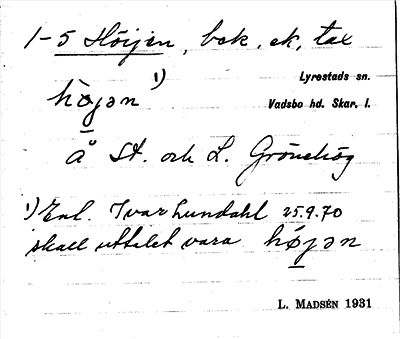 1-5 Höijen, bek. ek. tax
hὼjən 1)
Lyrestads sn.
Vadsbo hd. Skar. l.
å St. och L. Grönhög
1) Enl. Ivar Lundahl 25.9.70
skall uttalet vara hø̀jən
L. MADSÉN 1931